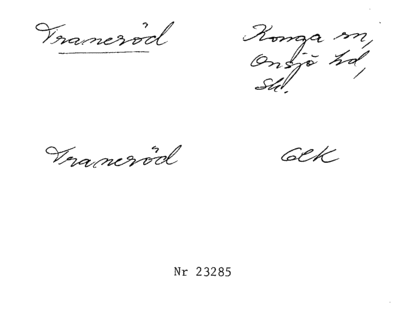 Traneröd
Konga sn,
Onsjö hd,
Sk.
Traneröd
GEK
Nr 23285